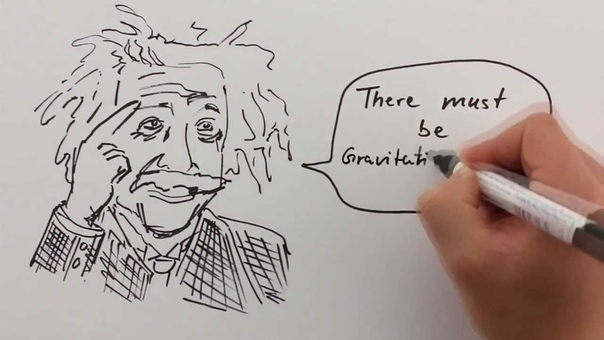 There must
be
Gravitati